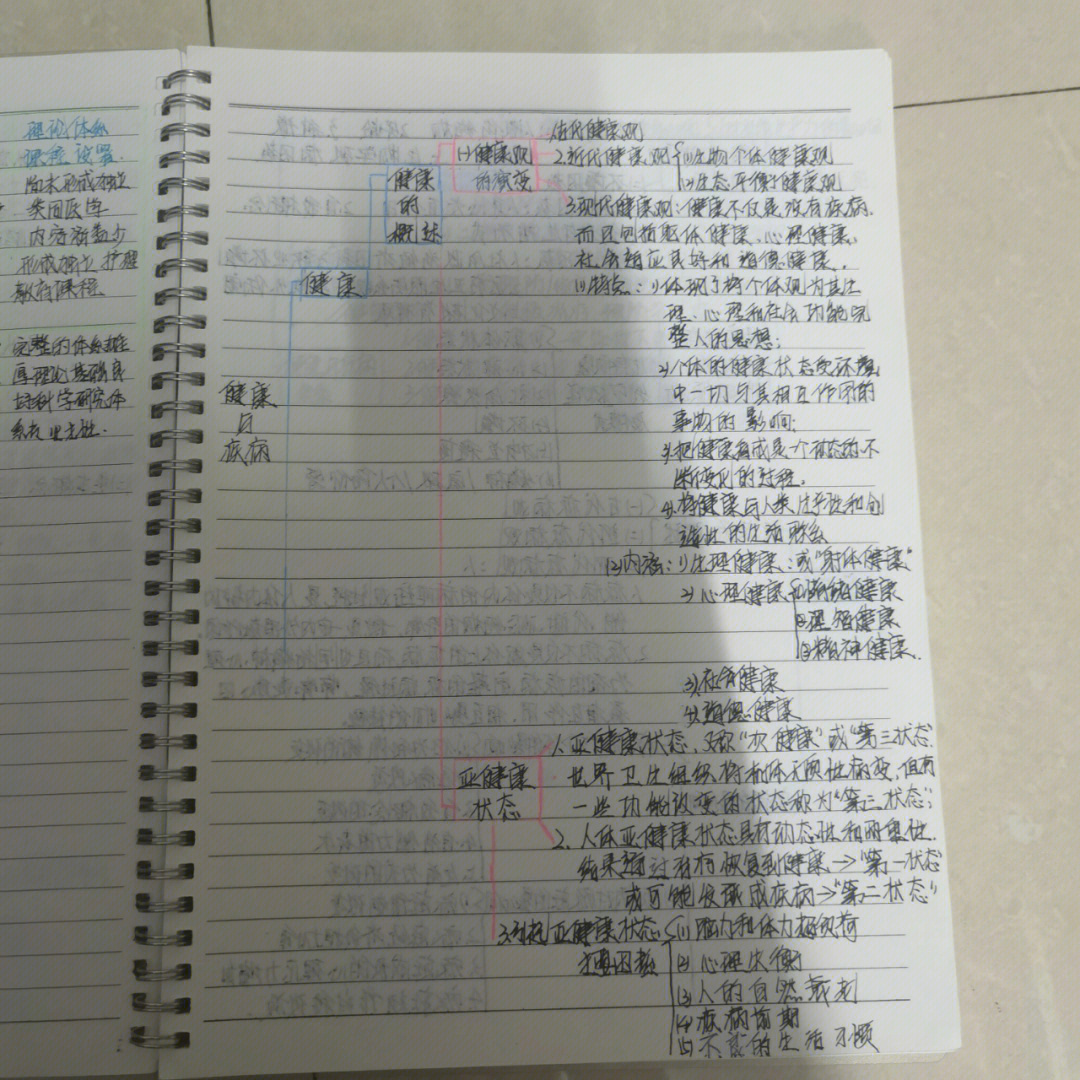 理论体系
课程设置
尚未形成独立
类同医学
内容涵盖少
形成独立护理
教育课程
完整的体系雏
厚理论基础良
好科学研究体
系和自主性.
健康
与
疾病
健康
健康
的
概述
1)健康观
的演变
1.古代健康观
2.近代健康观
(1)生物个体健康观
(2)生态平衡健康观
3.现代健康观:健康不仅是没有疾病.
而且包括躯体健康、心理健康、
社会适应良好和道德健康.
(1)特点:1)体现了将个体视为其生
理、心理和社会功能完
整人的思想;
2)个体的健康状态受环境
中一切与其相互作用的
事物的影响;
3)把健康看成是一个动态的不
断变化的过程.
4)将健康与人类生产性和创
造性的生活联系
(2)内容:1)生理健康:或"身体健康"
2)心理健康
①情绪健康
②理智健康
③精神健康.
3)社会健康
4)道德健康
亚健康
状态
1.亚健康状态,又称"次健康"或"第三状态.
世界卫生组织将机体无器质性病变,但有
一些功能改变的状态称为"第三状态";
2.人体亚健康状态具有动态性和两重性.
结果通过有何恢复到健康→"第一状态"
或可能发展成疾病→"第二状态"
3.引起亚健康状态
主要因素
(1)脑力和体力超负荷
(2)心理失衡
(3)人的自然衰老
(4)疾病前期
(5)不良的生活习惯